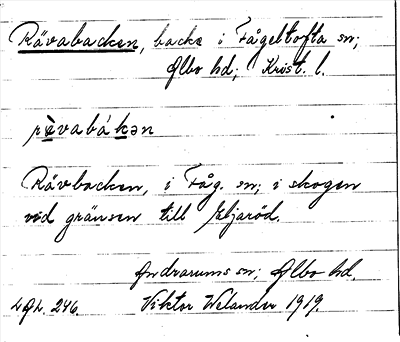 Rävabacken, backe i Fågeltofta sn;
Albo hd; Krist. l.
rèvabákən
Rävbacken, i Fåg. sn; i skogen
vid gränsen till Eljaröd.
Andrarums sn; Albo hd.
Viktor Welander 1919.
246.